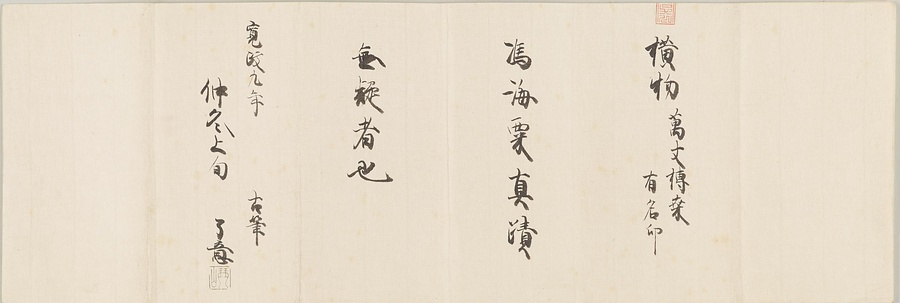 横物 萬丈榑桑
有名印
馮海粟真蹟
無疑者也
寛政九年
仲冬上旬
古筆
了意